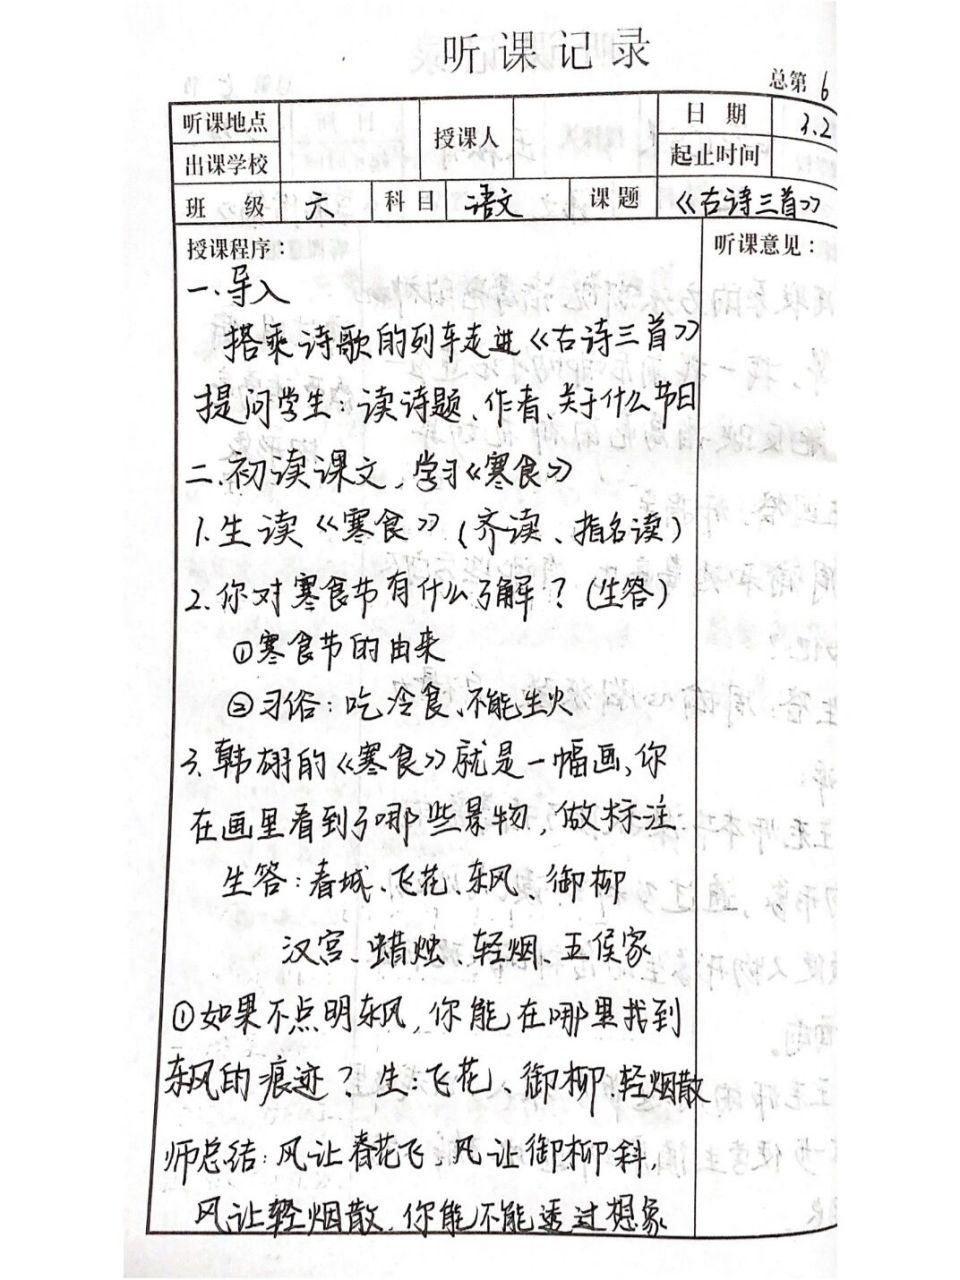 听课记录
总第 6
听课地点 授课人 日期 3.2
出课学校 起止时间
班级 六 科目 语文 课题 《古诗三首》
授课程序: 听课意见:
一.导入
搭乘诗歌的列车走进《古诗三首》
提问学生:读诗题、作者、关于什么节日
二.初读课文,学习《寒食》
1.生读《寒食》(齐读、指名读)
2.你对寒食节有什么了解?(生答)
①寒食节的由来
②习俗:吃冷食、不能生火
3.韩翃的《寒食》就是一幅画、你
在画里看到了哪些景物,做标注.
生答:春城、飞花、东风、御柳
汉宫、蜡烛、轻烟、五侯家
①如果不点明东风,你能在哪里找到
东风的痕迹?生:飞花、御柳.轻烟散
师总结:风让春花飞,风让御柳斜,
风让轻烟散,你能不能透过想象